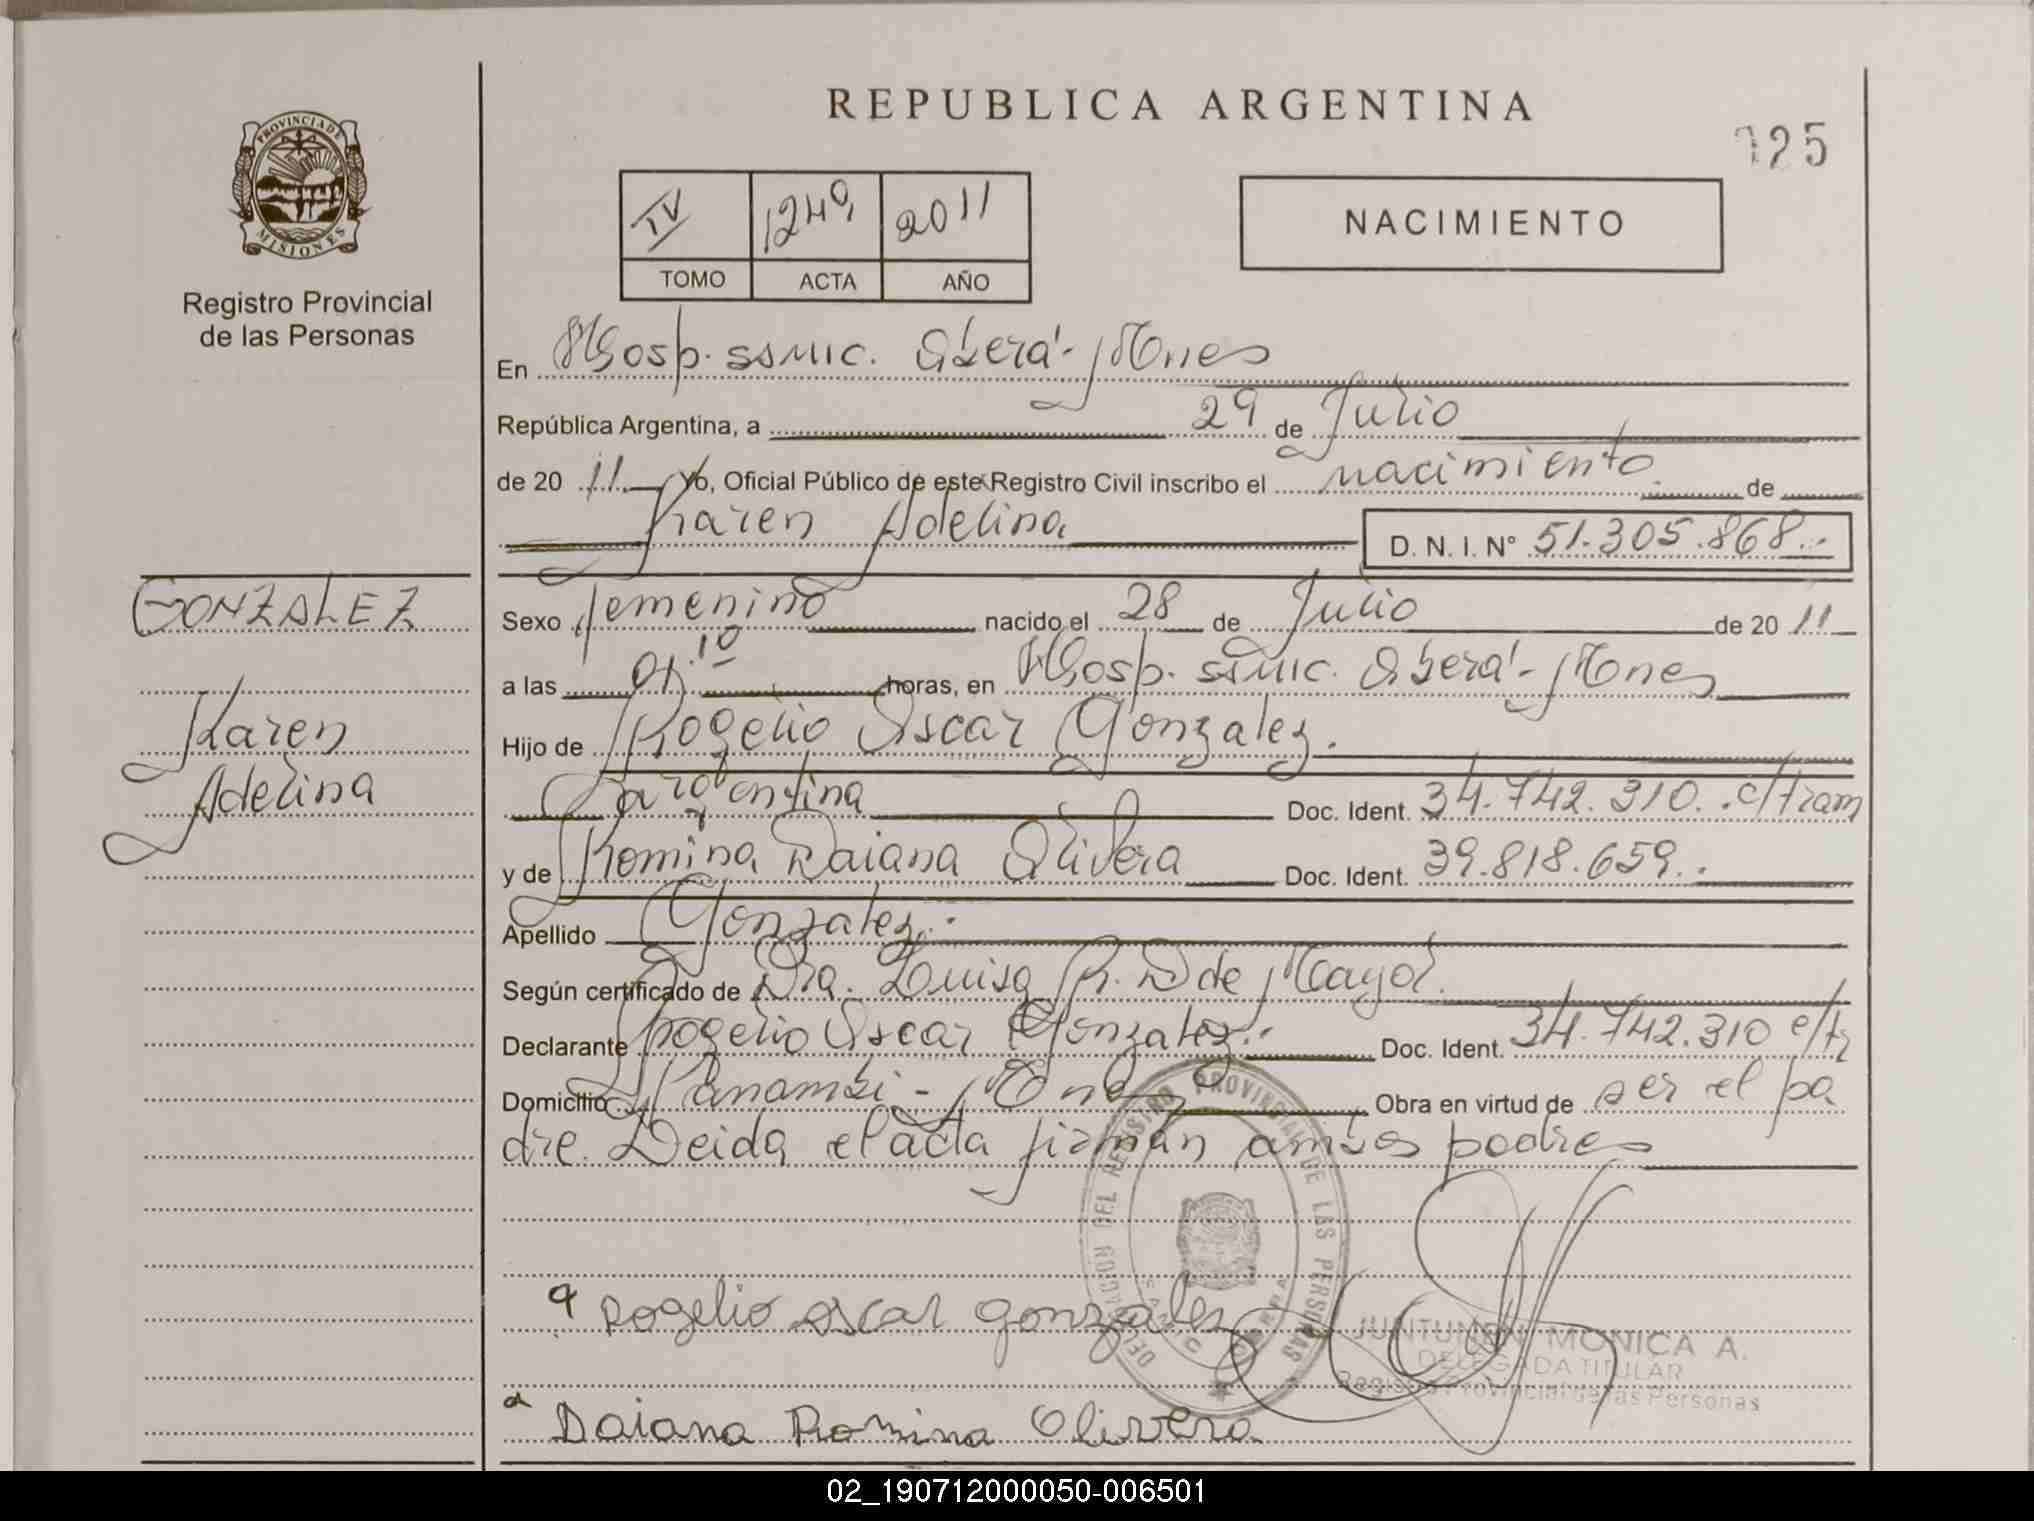 REPUBLICA ARGENTINA
125
PROVINCIA DE
MISIONES
Registro Provincial
de las Personas
IV 1249 2011
TOMO ACTA AÑO
NACIMIENTO
En Hosp. SAMIC. Oberá - Mnes
República Argentina, a 29 de Julio
de 20 11 Yo, Oficial Público de este Registro Civil inscribo el nacimiento de
Karen Adelina D. N. I. N° 51.305.868.-
GONZALEZ
Karen
Adelina
Sexo femenino nacido el 28 de Julio de 20 11
a las 01.10 horas, en Hosp. SAMIC. Oberá - Mnes
Hijo de Rogelio Oscar Gonzalez.
Argentina Doc. Ident. 34.742.310. c/tram
y de Romina Daiana Olivera Doc. Ident. 39.818.659.-
Apellido Gonzalez.-
Según certificado de Dra. Luisa R. D de Mayol.
Declarante Rogelio Oscar Gonzalez.- Doc. Ident. 34.742.310 c/tr
Domicilio Panambi - Mnes Obra en virtud de ser el pa
dre. Leida el acta firman ambos padres
DELEGADA DEL REGISTRO PROVINCIAL DE LAS PERSONAS
SAMIC OBERA
Rogelio oscar gonzalez
JUNTUNEN MONICA A.
DELEGADA TITULAR
Registro Provincial de las Personas
Daiana Romina Olivera
02_190712000050-006501